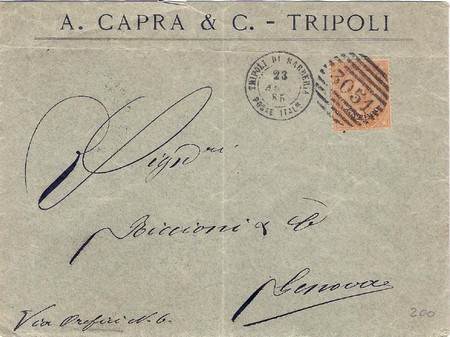 A. CAPRA & C. - TRIPOLI
TRIPOLI DI BARBERIA
23
85
POSTE ITALNE
3051
Sigri
Riccioni & C.
Genova
Via Orefici N. 6.
200